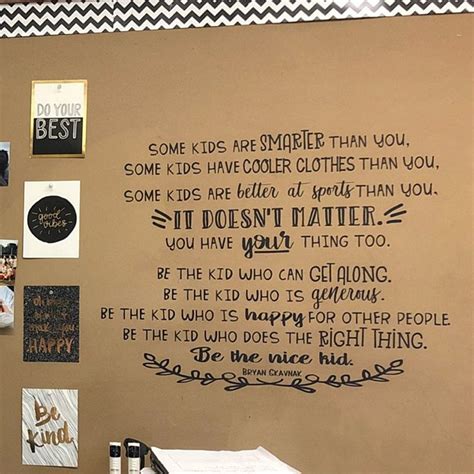 DO YOUR
BEST
good
vibes
HAPPY
Be
kind
SOME KIDS ARE SMARTER THAN YOU,
SOME KIDS HAVE COOLER CLOTHES THAN YOU,
SOME KIDS ARE better at sports THAN YOU,
IT DOESN'T MATTER.
YOU HAVE your THING TOO.
BE THE KID WHO CAN GET ALONG.
BE THE KID WHO IS generous.
BE THE KID WHO IS happy FOR OTHER PEOPLE
BE THE KID WHO DOES THE RIGHT THING.
Be the nice kid.
BRYAN SKAVNAK